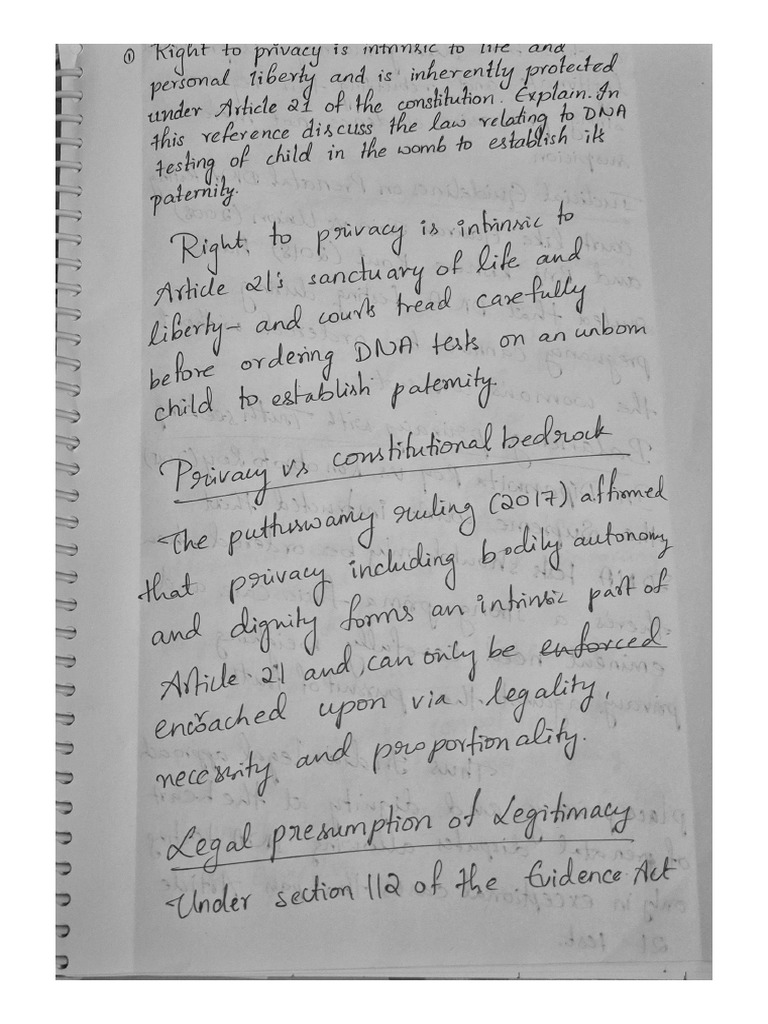 ① Right to privacy is intrinsic to life and
personal liberty and is inherently protected
under Article 21 of the constitution. Explain. In
this reference discuss the law relating to DNA
testing of child in the womb to establish its
paternity.
Right to privacy is intrinsic to
Article 21's sanctuary of life and
liberty- and courts tread carefully
before ordering DNA tests on an unborn
child to establish paternity.
Privacy vs constitutional bedrock
The puttuswamy ruling (2017) affirmed
that privacy including bodily autonomy
and dignity forms an intrinsic part of
Article 21 and can only be enforced
encroached upon via legality,
necessity and proportionality.
Legal presumption of Legitimacy
Under section 112 of the Evidence Act